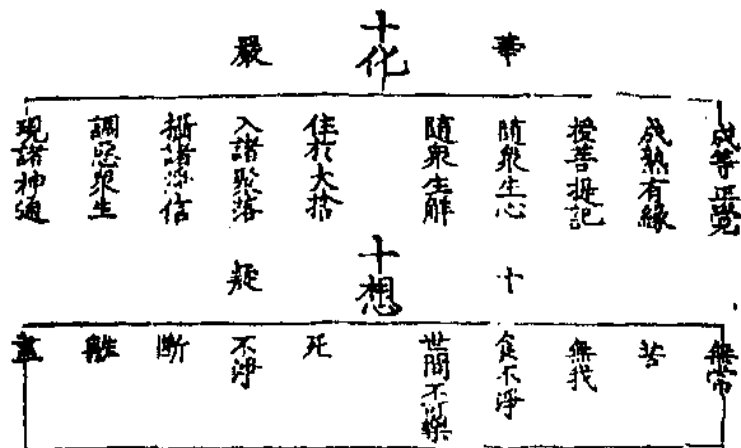 華 十化 嚴
成等正覺
成熟有緣
授菩提記
隨衆生心
隨衆生解
住於大捨
入諸聚落
攝諸淨信
調惡衆生
現諸神通
十 十想 疑
無常
苦
無我
食不淨
世間不可樂
死
不淨
斷
離
盡